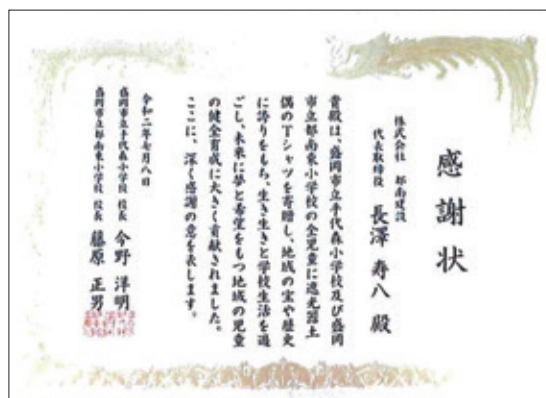 感謝状
株式会社 都南建設
代表取締役 長澤 寿八 殿
貴殿は、盛岡市立手代森小学校及び盛岡
市立都南東小学校の全児童に遮光器土
偶のTシャツを寄贈し、地域の宝や歴史
に誇りをもち、生き生きと学校生活を過
ごし、未来に夢と希望をもつ地域の児童
の健全育成に大きく貢献されました。
ここに、深く感謝の意を表します。
令和二年七月八日
盛岡市立手代森小学校 校長 今野 洋明
盛岡市立都南東小学校 校長 藤原 正男